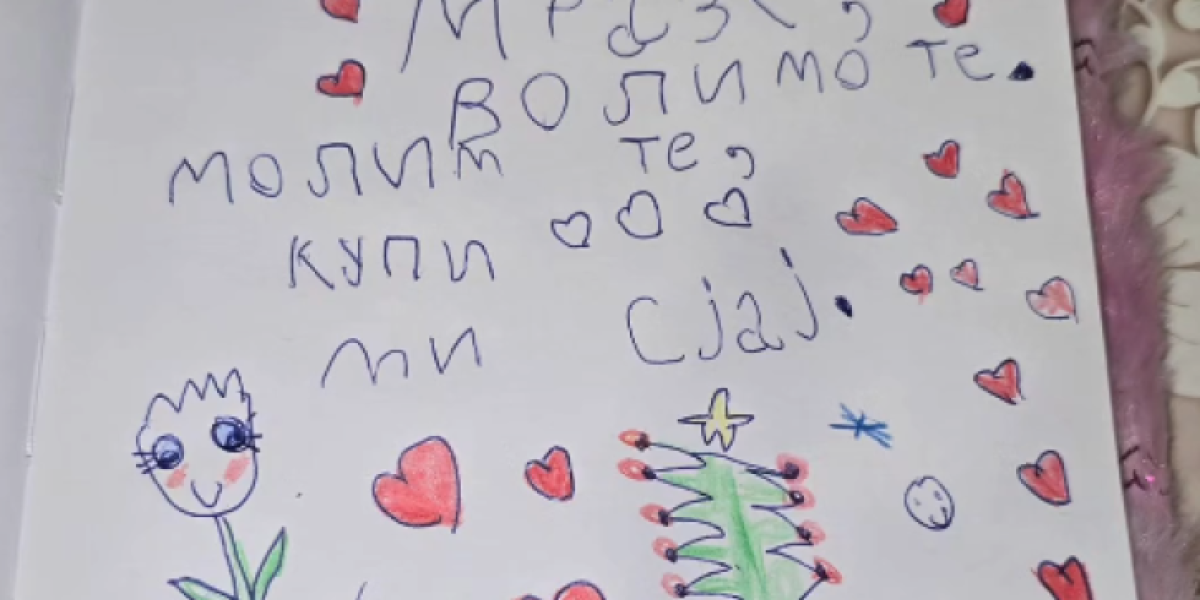 Мразе,
ВОЛИМО ТЕ.
МОЛИМ ТЕ,
КУПИ
МИ Сјај.